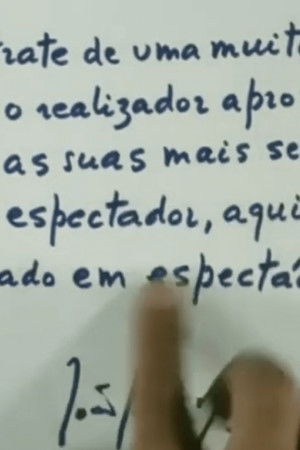 rate de uma muit
o realizador apro
as suas mais se
espectador, aqui
ado em especta